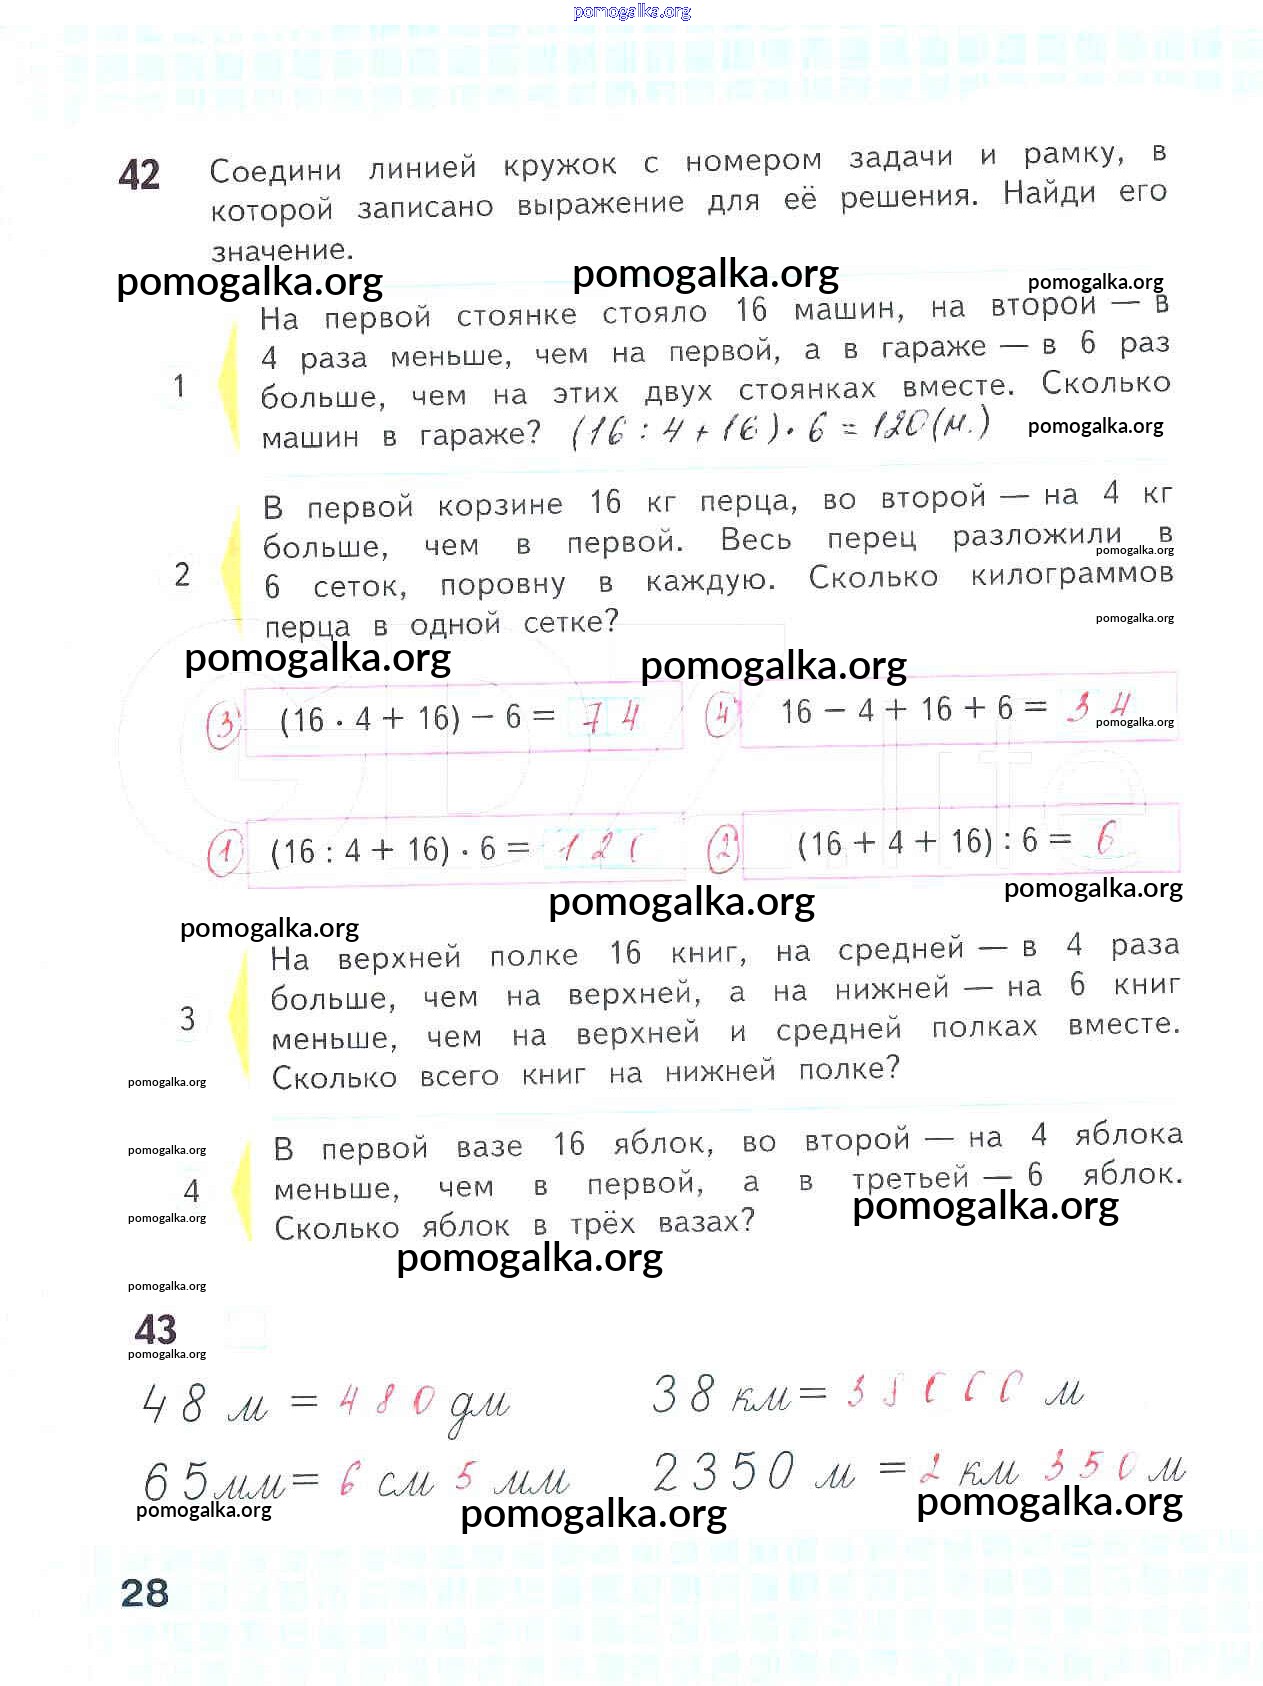 pomogalka.org
42 Соедини линией кружок с номером задачи и рамку, в
которой записано выражение для её решения. Найди его
значение.
pomogalka.org pomogalka.org pomogalka.org
На первой стоянке стояло 16 машин, на второй — в
4 раза меньше, чем на первой, а в гараже — в 6 раз
1
больше, чем на этих двух стоянках вместе. Сколько
машин в гараже? (16 : 4 + 16) · 6 = 120 (м.) pomogalka.org
В первой корзине 16 кг перца, во второй — на 4 кг
больше, чем в первой. Весь перец разложили в
pomogalka.org
2
6 сеток, поровну в каждую. Сколько килограммов
перца в одной сетке? pomogalka.org
pomogalka.org pomogalka.org
3 (16 · 4 + 16) − 6 = 74 4 16 − 4 + 16 + 6 = 34
pomogalka.org
1 (16 : 4 + 16) · 6 = 120 2 (16 + 4 + 16) : 6 = 6
pomogalka.org pomogalka.org
pomogalka.org
На верхней полке 16 книг, на средней — в 4 раза
больше, чем на верхней, а на нижней — на 6 книг
3
меньше, чем на верхней и средней полках вместе.
Сколько всего книг на нижней полке?
pomogalka.org
В первой вазе 16 яблок, во второй — на 4 яблока
pomogalka.org
4
меньше, чем в первой, а в третьей — 6 яблок.
pomogalka.org pomogalka.org
Сколько яблок в трёх вазах?
pomogalka.org
pomogalka.org
43
pomogalka.org
48 м = 480 дм 38 км = 38000 м
65 мм = 6 см 5 мм 2350 м = 2 км 350 м
pomogalka.org pomogalka.org pomogalka.org
28